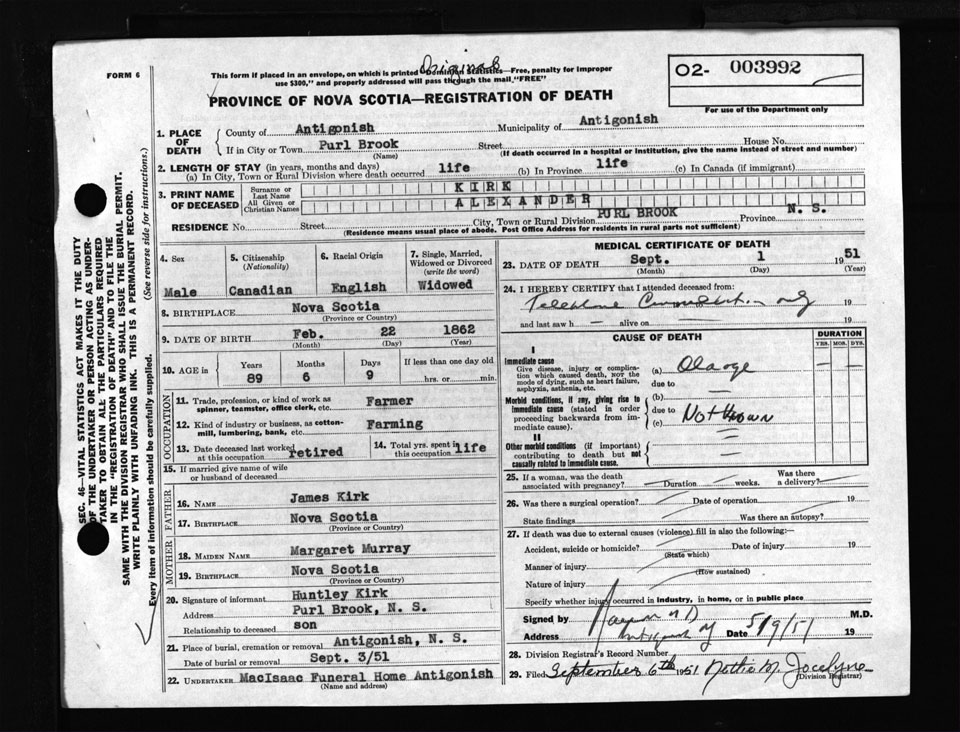 FORM 6
Original
This form if placed in an envelope, on which is printed "Dominion Statistics—Free, penalty for improper
use $300," and properly addressed will pass through the mail, "FREE"
O2- 003992
For use of the Department only
PROVINCE OF NOVA SCOTIA—REGISTRATION OF DEATH
1. PLACE OF DEATH
County of Antigonish Municipality of Antigonish
If in City or Town Purl Brook Street House No.
(Name) (If death occurred in a hospital or institution, give the name instead of street and number)
2. LENGTH OF STAY (in years, months and days)
(a) In City, Town or Rural Division where death occurred life (b) In Province life (c) In Canada (if immigrant)
3. PRINT NAME OF DECEASED
Surname or Last Name KIRK
All Given or Christian Names ALEXANDER
RESIDENCE No. Street City, Town or Rural Division PURL BROOK Province N. S.
(Residence means usual place of abode. Post Office Address for residents in rural parts not sufficient)
4. Sex Male
5. Citizenship (Nationality) Canadian
6. Racial Origin English
7. Single, Married, Widowed or Divorced (write the word) Widowed
8. BIRTHPLACE Nova Scotia
(Province or Country)
9. DATE OF BIRTH Feb. 22 1862
(Month) (Day) (Year)
10. AGE IN Years Months Days If less than one day old
89 6 9 hrs. or min.
OCCUPATION
11. Trade, profession, or kind of work as Farmer
spinner, teamster, office clerk, etc.
12. Kind of industry or business, as cotton- Farming
mill, lumbering, bank, etc.
13. Date deceased last worked at this occupation retired
14. Total yrs. spent in this occupation life
15. If married give name of wife
or husband of deceased
FATHER
16. NAME James Kirk
17. BIRTHPLACE Nova Scotia
(Province or Country)
MOTHER
18. MAIDEN NAME Margaret Murray
19. BIRTHPLACE Nova Scotia
(Province or Country)
20. Signature of informant Huntley Kirk
Address Purl Brook, N. S.
Relationship to deceased son
21. Place of burial, cremation or removal Antigonish, N. S.
Date of burial or removal Sept. 3/51
22. UNDERTAKER MacIsaac Funeral Home Antigonish
(Name and address)
MEDICAL CERTIFICATE OF DEATH
23. DATE OF DEATH Sept. 1 1951
(Month) (Day) (Year)
24. I HEREBY CERTIFY that I attended deceased from:
Telephone only 19
and last saw h — alive on — 19
CAUSE OF DEATH
DURATION
YRS. MOS. DYS.
I
Immediate cause
Give disease, injury or complication which caused death, NOT the mode of dying, such as heart failure, asphyxia, asthenia, etc.
(a) Old age
due to —
Morbid conditions, if any, giving rise to immediate cause (stated in order proceeding backwards from immediate cause).
(b)
due to Not known
(c)
II
Other morbid conditions (if important) contributing to death but not causally related to immediate cause.
25. If a woman, was the death associated with pregnancy? Duration weeks. Was there a delivery?
26. Was there a surgical operation? Date of operation 19
State findings Was there an autopsy?
27. If death was due to external causes (violence) fill in also the following:—
Accident, suicide or homicide? Date of injury 19
(State which)
Manner of injury
(How sustained)
Nature of injury
Specify whether injury occurred in industry, in home, or in public place
Signed by M.D.
Address Antigonish Date 5/9/51 19
28. Division Registrar's Record Number
29. Filed September 6th 1951 Nottie M. Jocelyne
(Division Registrar)
SEC. 46—VITAL STATISTICS ACT MAKES IT THE DUTY
OF THE UNDERTAKER OR PERSON ACTING AS UNDER-
TAKER TO OBTAIN ALL THE PARTICULARS REQUIRED
IN THE "REGISTRATION OF DEATH" AND TO FILE THE
SAME WITH THE DIVISION REGISTRAR WHO SHALL ISSUE THE BURIAL PERMIT.
WRITE PLAINLY WITH UNFADING INK. THIS IS A PERMANENT RECORD.
Every item of information should be carefully supplied. (See reverse side for instructions.)